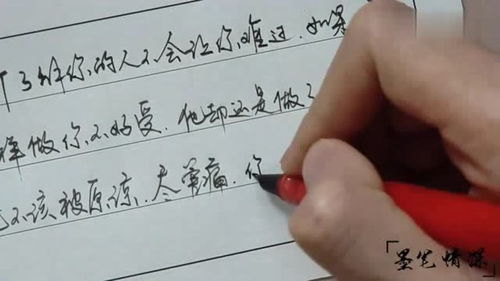 了你的人不会让你难过.如果
样做你不好受.他却还是做了
不该被原谅.尽管痛.你
「墨笔情深」